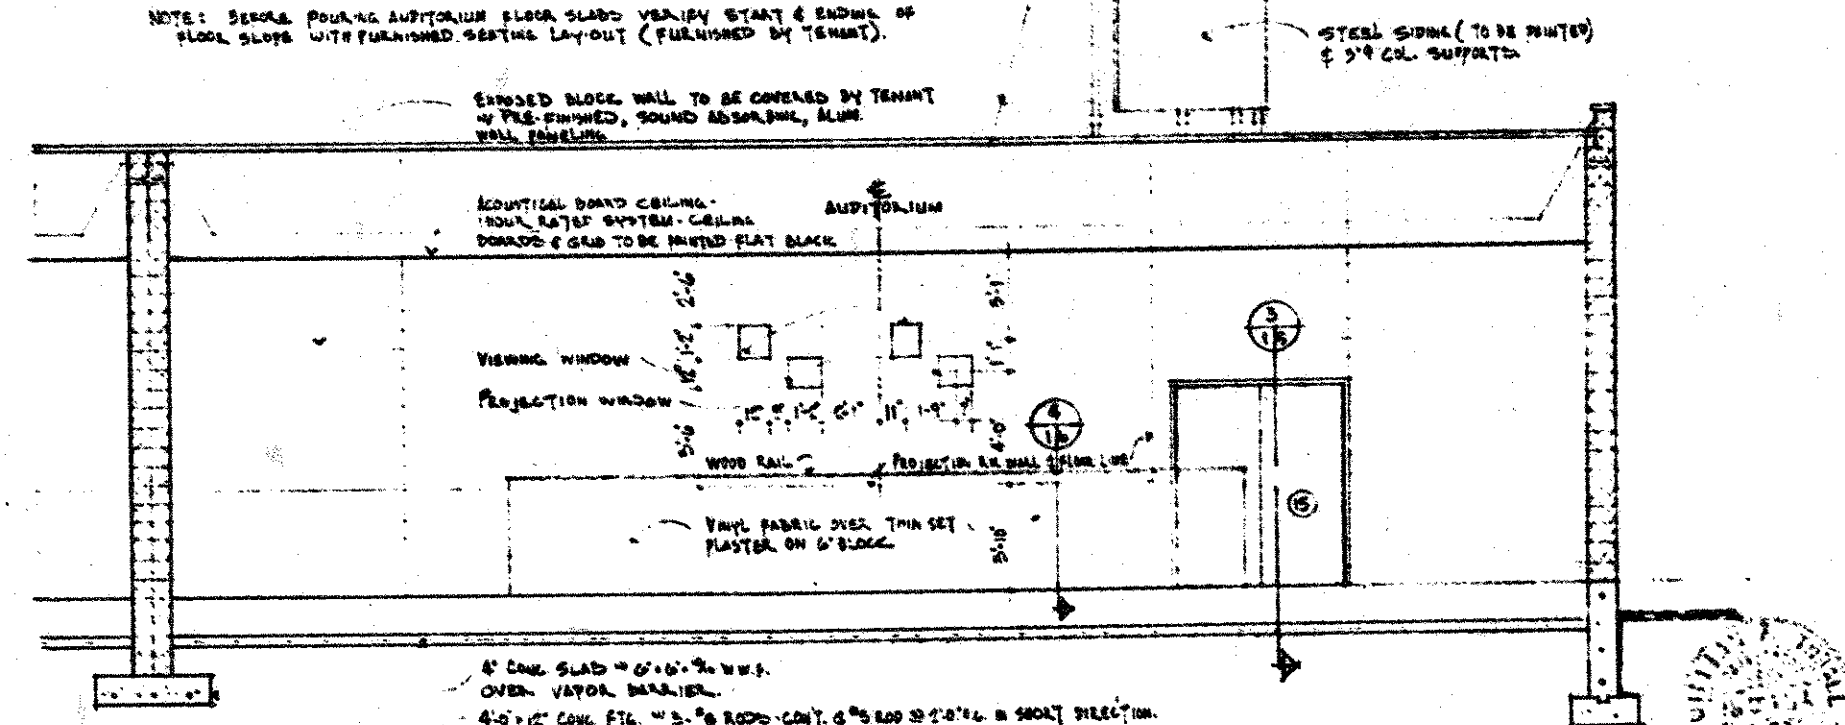 NOTE: BEFORE POURING AUDITORIUM FLOOR SLABS VERIFY START & ENDING OF
FLOOR SLOPE WITH FURNISHED SEATING LAY-OUT (FURNISHED BY TENANT).
STEEL SIDING (TO BE PAINTED)
& 3"φ COL. SUPPORTS
EXPOSED BLOCK WALL TO BE COVERED BY TENANT
W/ PRE-FINISHED, SOUND ABSORBING, ALUM.
WALL PANELING
ACOUSTICAL BOARD CEILING-
1 HOUR RATED SYSTEM - CEILING
BOARDS & GRID TO BE PAINTED FLAT BLACK
AUDITORIUM
2'-6"
VIEWING WINDOW
12" 1'-2"
PROJECTION WINDOW
11" 1'-9"
5'-6"
4'-0"
3
15
4
WOOD RAIL
PROJECTION RM WALL & FLOOR LINE
15
VINYL FABRIC OVER THIN SET
PLASTER ON 6" BLOCK
3'-10"
4" CONC SLAB
OVER VAPOR BARRIER.
4'-0" x 12" CONC FTG. W/ RODS CONT. IN SHORT DIRECTION.